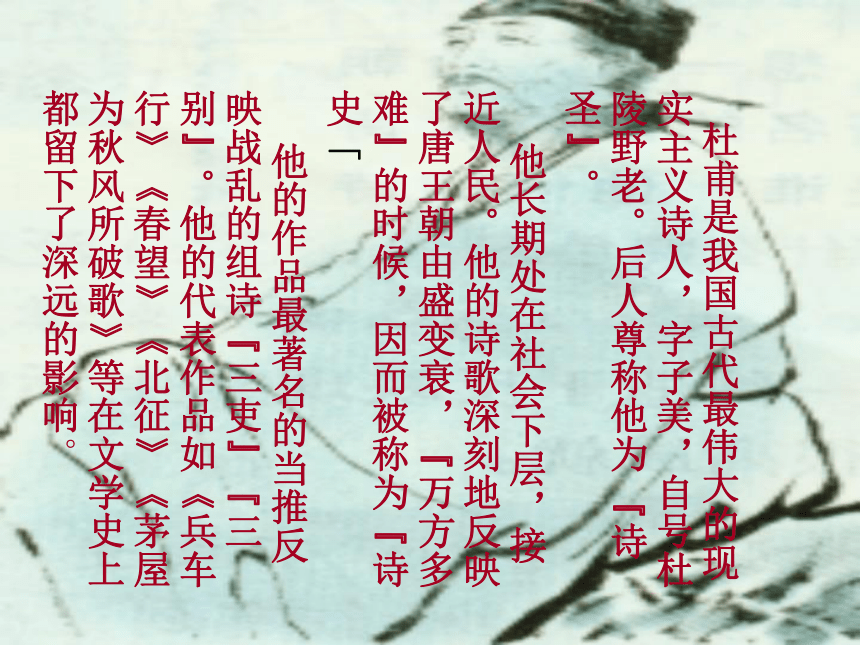 杜甫是我国古代最伟大的现
实主义诗人，字子美，自号杜
陵野老。后人尊称他为『诗
圣』。
他长期处在社会下层，接
近人民。他的诗歌深刻地反映
了唐王朝由盛变衰，『万方多
难』的时候，因而被称为『诗
史「
他的作品最著名的当推反
映战乱的组诗『三吏』『三
别』。他的代表作品如《兵车
行》《春望》《北征》《茅屋
为秋风所破歌》等在文学史上
都留下了深远的影响。